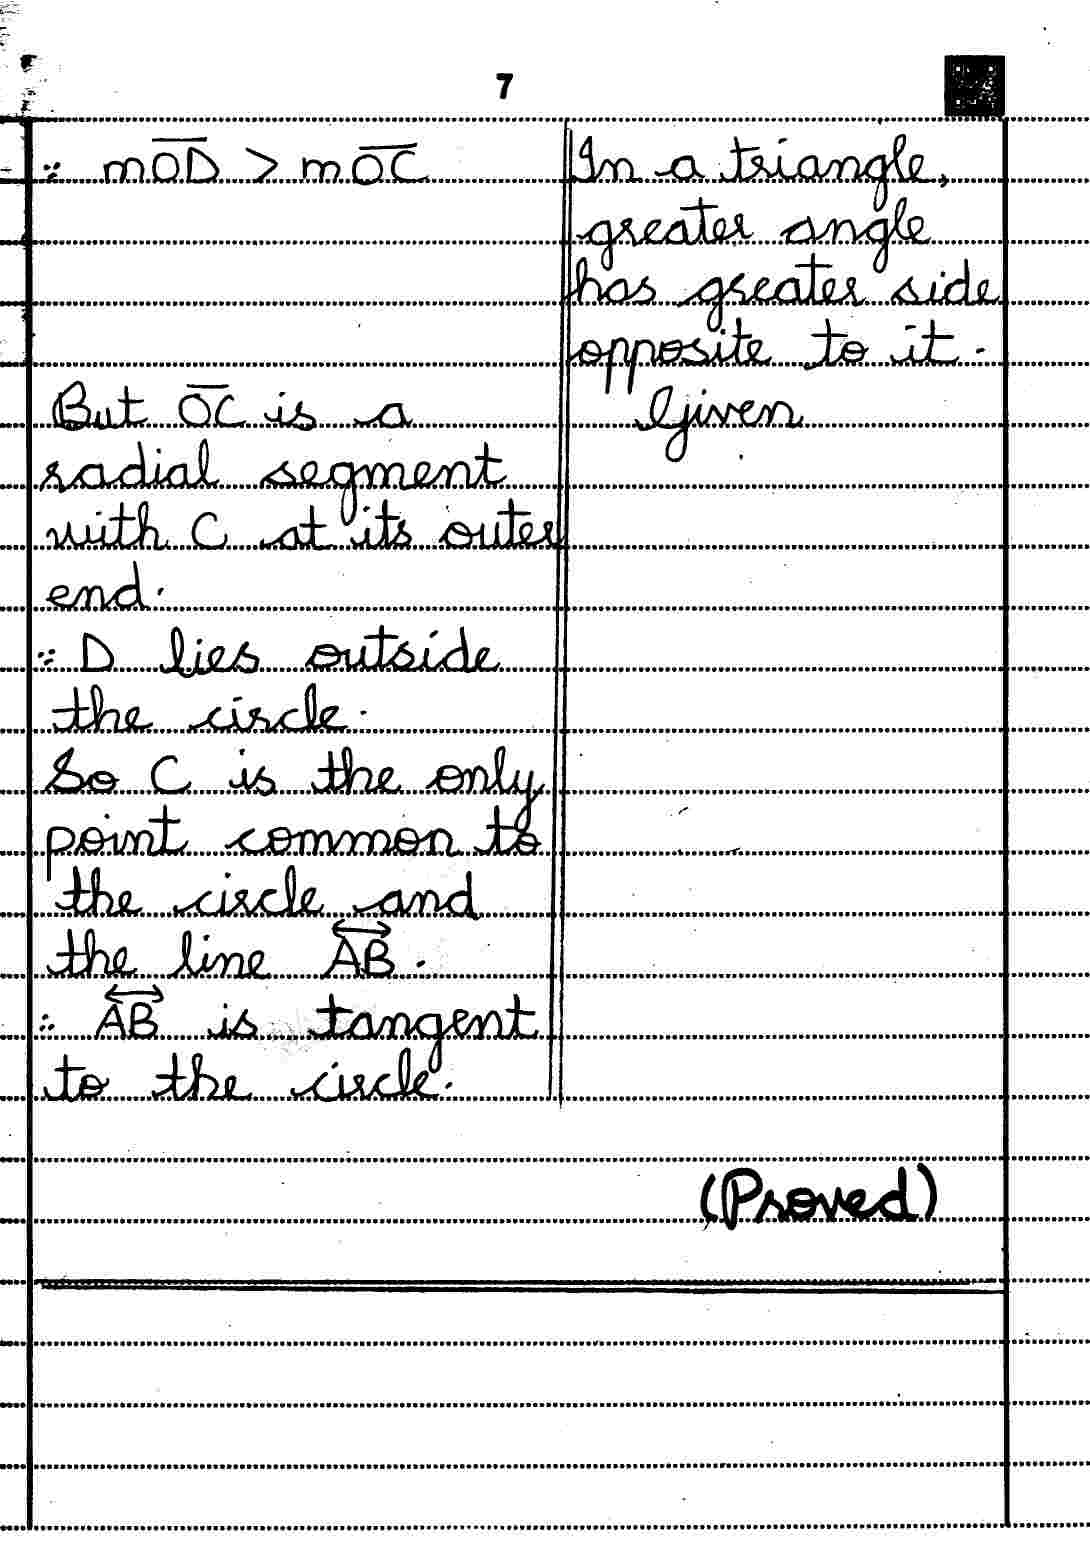 7
∴ m\overline{OD} > m\overline{OC}
In a triangle,
greater angle
has greater side
opposite to it.
But \overline{OC} is a
Given
radial segment
with C at its outer
end.
∴ D lies outside
the circle.
So C is the only
point common to
the circle and
the line \overleftrightarrow{AB}.
∴ \overleftrightarrow{AB} is tangent
to the circle.
(Proved)